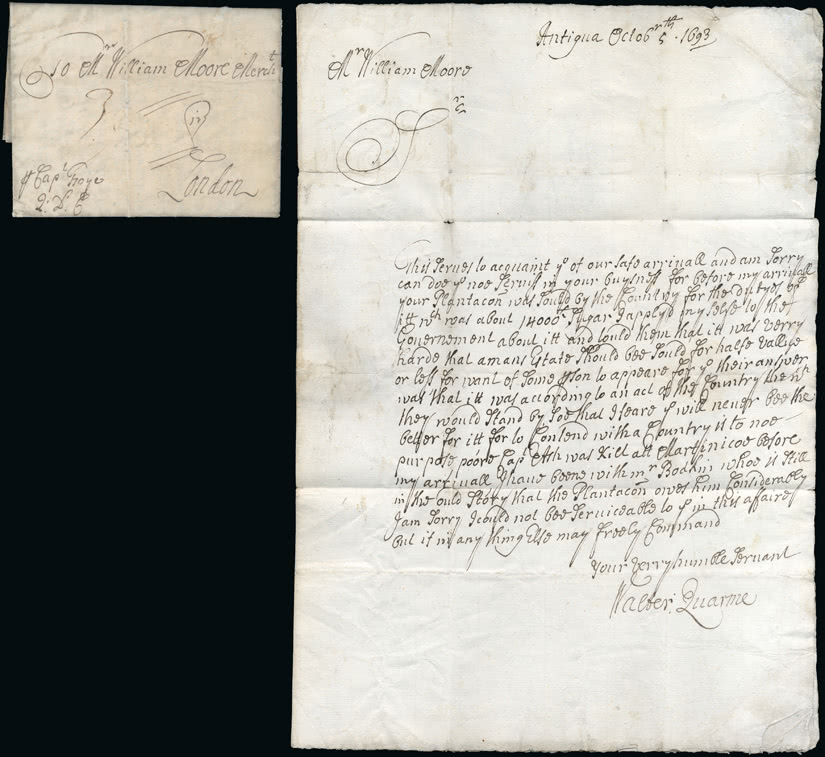 To Mr William Moore Mercht
in
London
Capt
Q: D: C
Antigua Octobr 5th. 1693
Mr William Moore
Sr
This serves to acquaint yo of our safe arrivall and am sorry
can doe yo noe servis in your buysness for before my arrivall
your Plantacon was sould by the Country for the dutyes of
itt wch was about 14000lb sugar I applyd my selfe to the
Governement about itt and tould them that itt was verry
harde that a mans Estate should bee sould for halfe vallue
or less for want of some pson to appeare for yo their answer
was that itt was according to an act of the Country the wch
they would stand by soe that I feare yo will never bee the
better for itt for to Contend with a Country is to noe
purpose poore Capt Ash was kill att Martinicoe before
my arrivall I have beene with mr Bodkin whoe is still
in the ould story that the Plantacon owes him Considerably
I am sorry I could not bee serviceable to yo in this affaire
but if in any thing Else may freely Command
your verry humble servant
Walter: Quarme